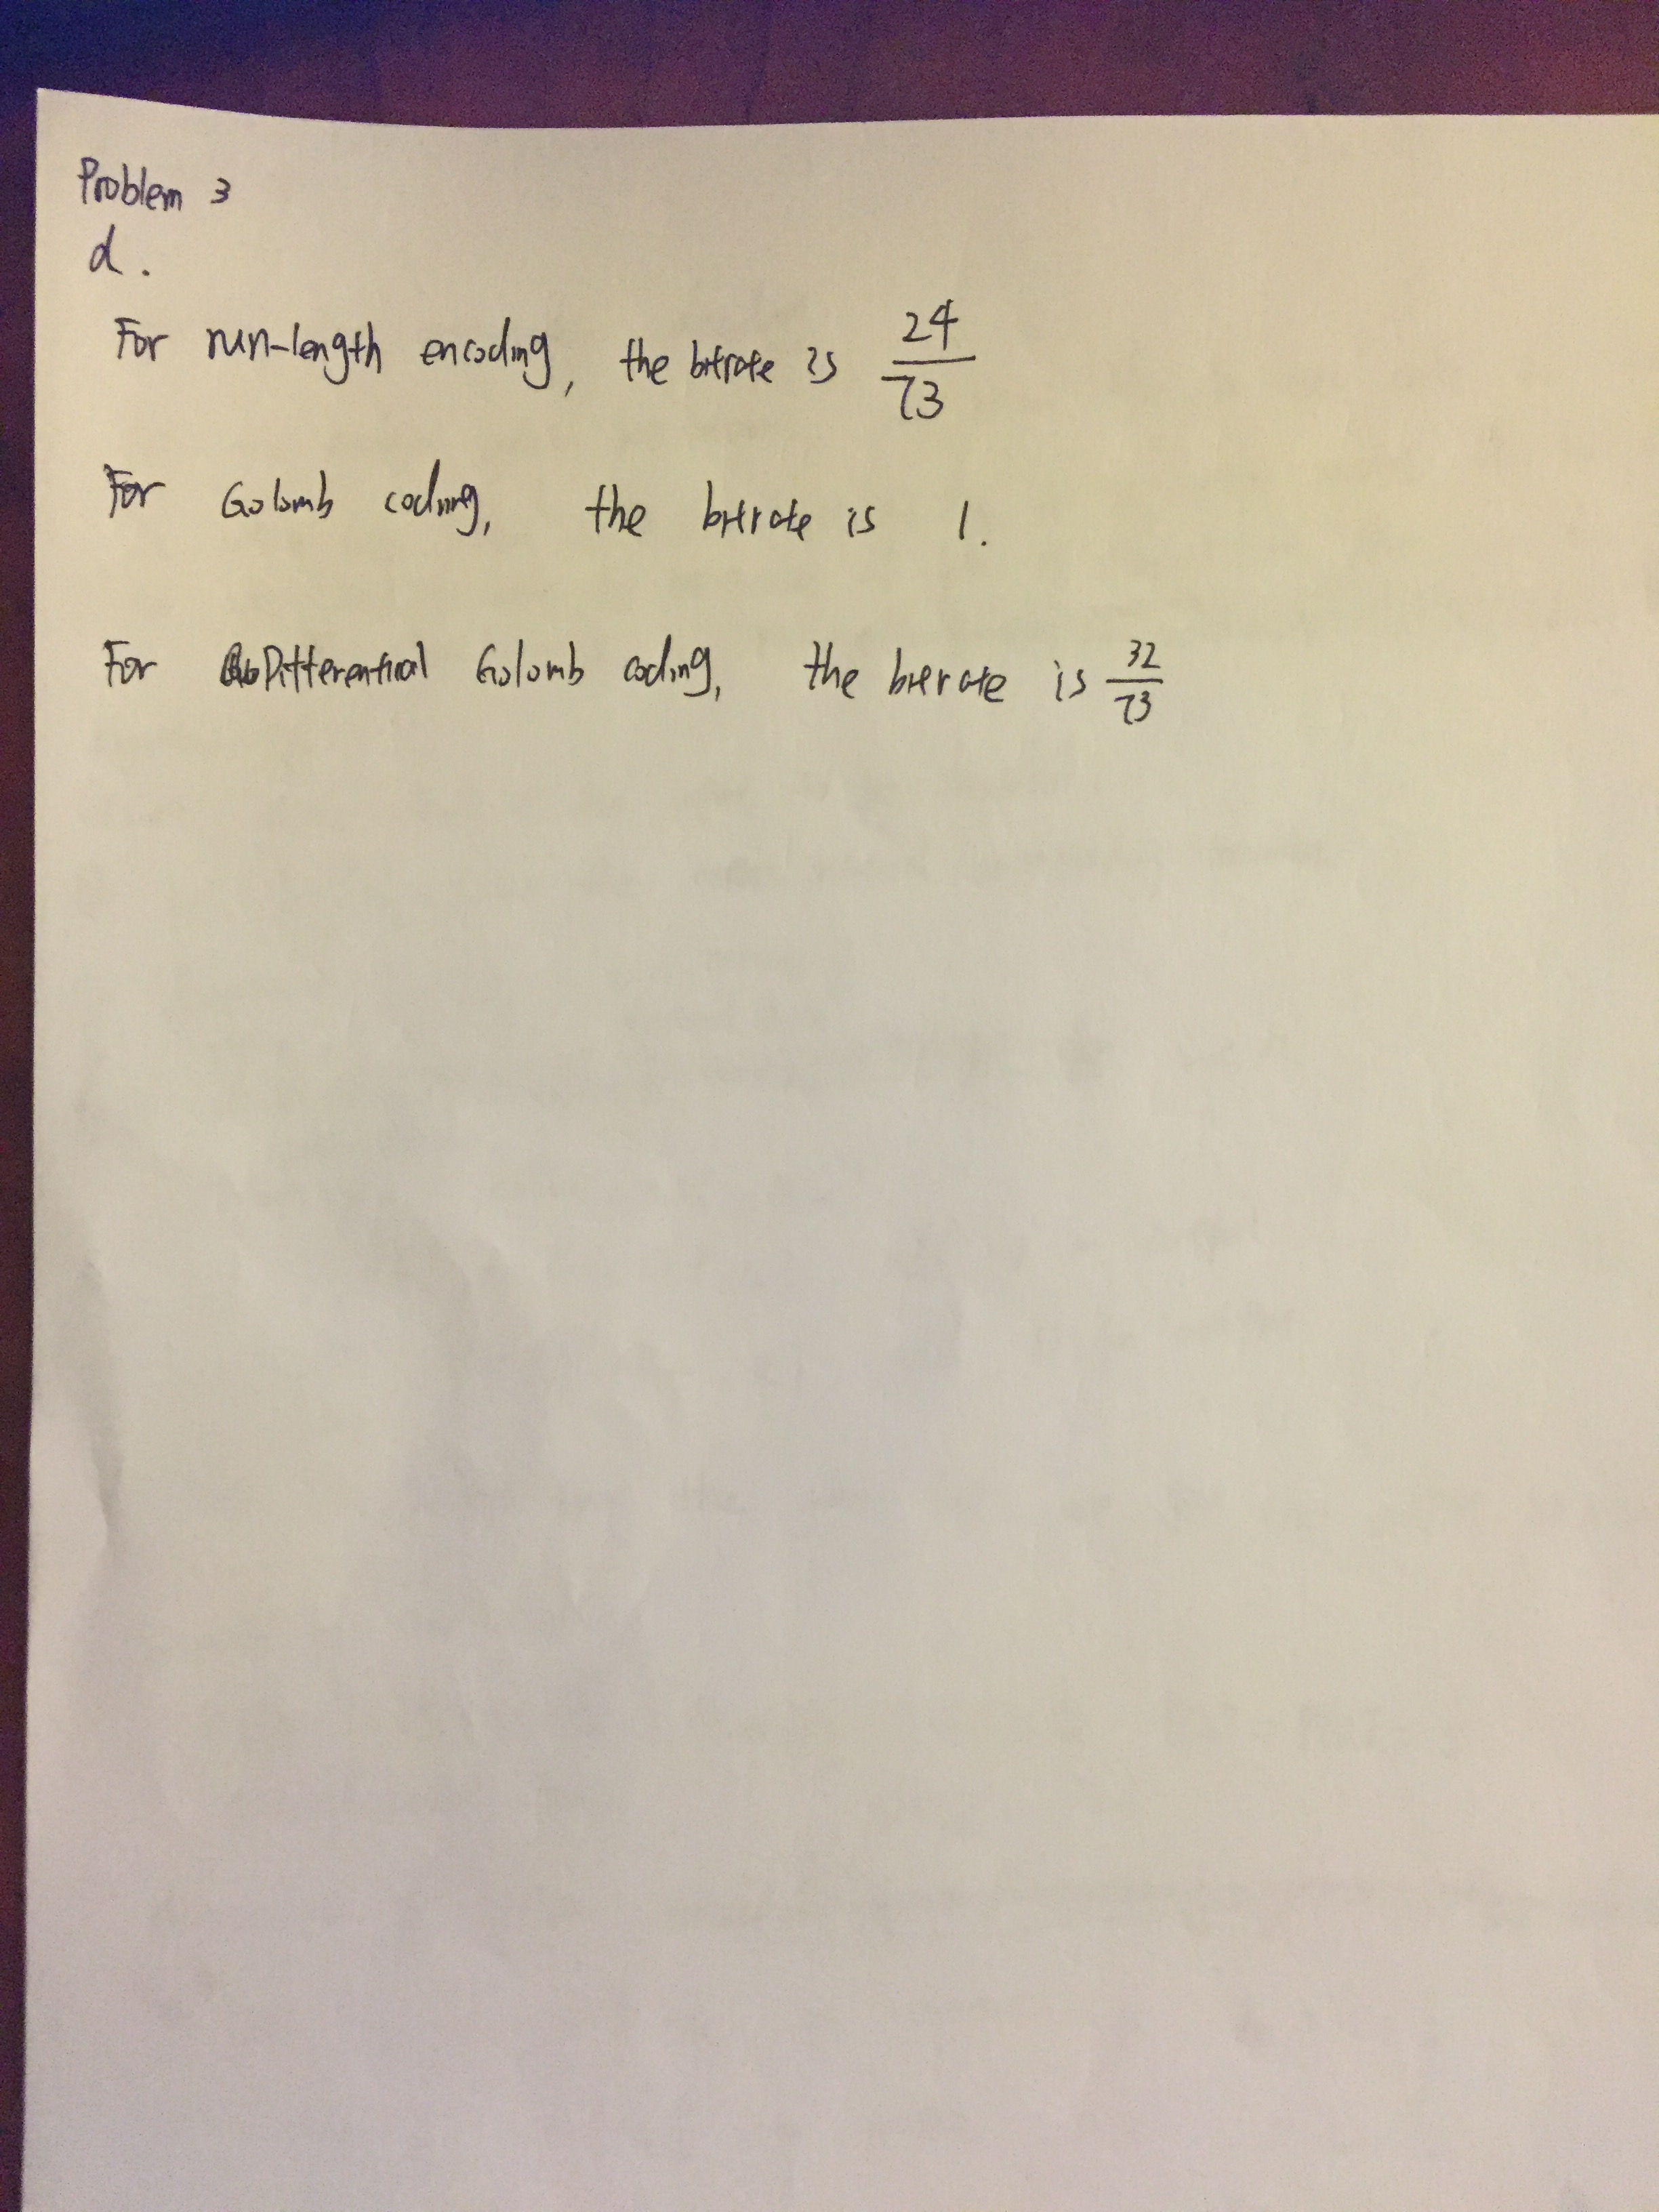 Problem 3
d.
For run-length encoding, the bitrate is 24/73
For Golomb coding, the bitrate is 1.
For Differential Golomb coding, the bitrate is 32/73